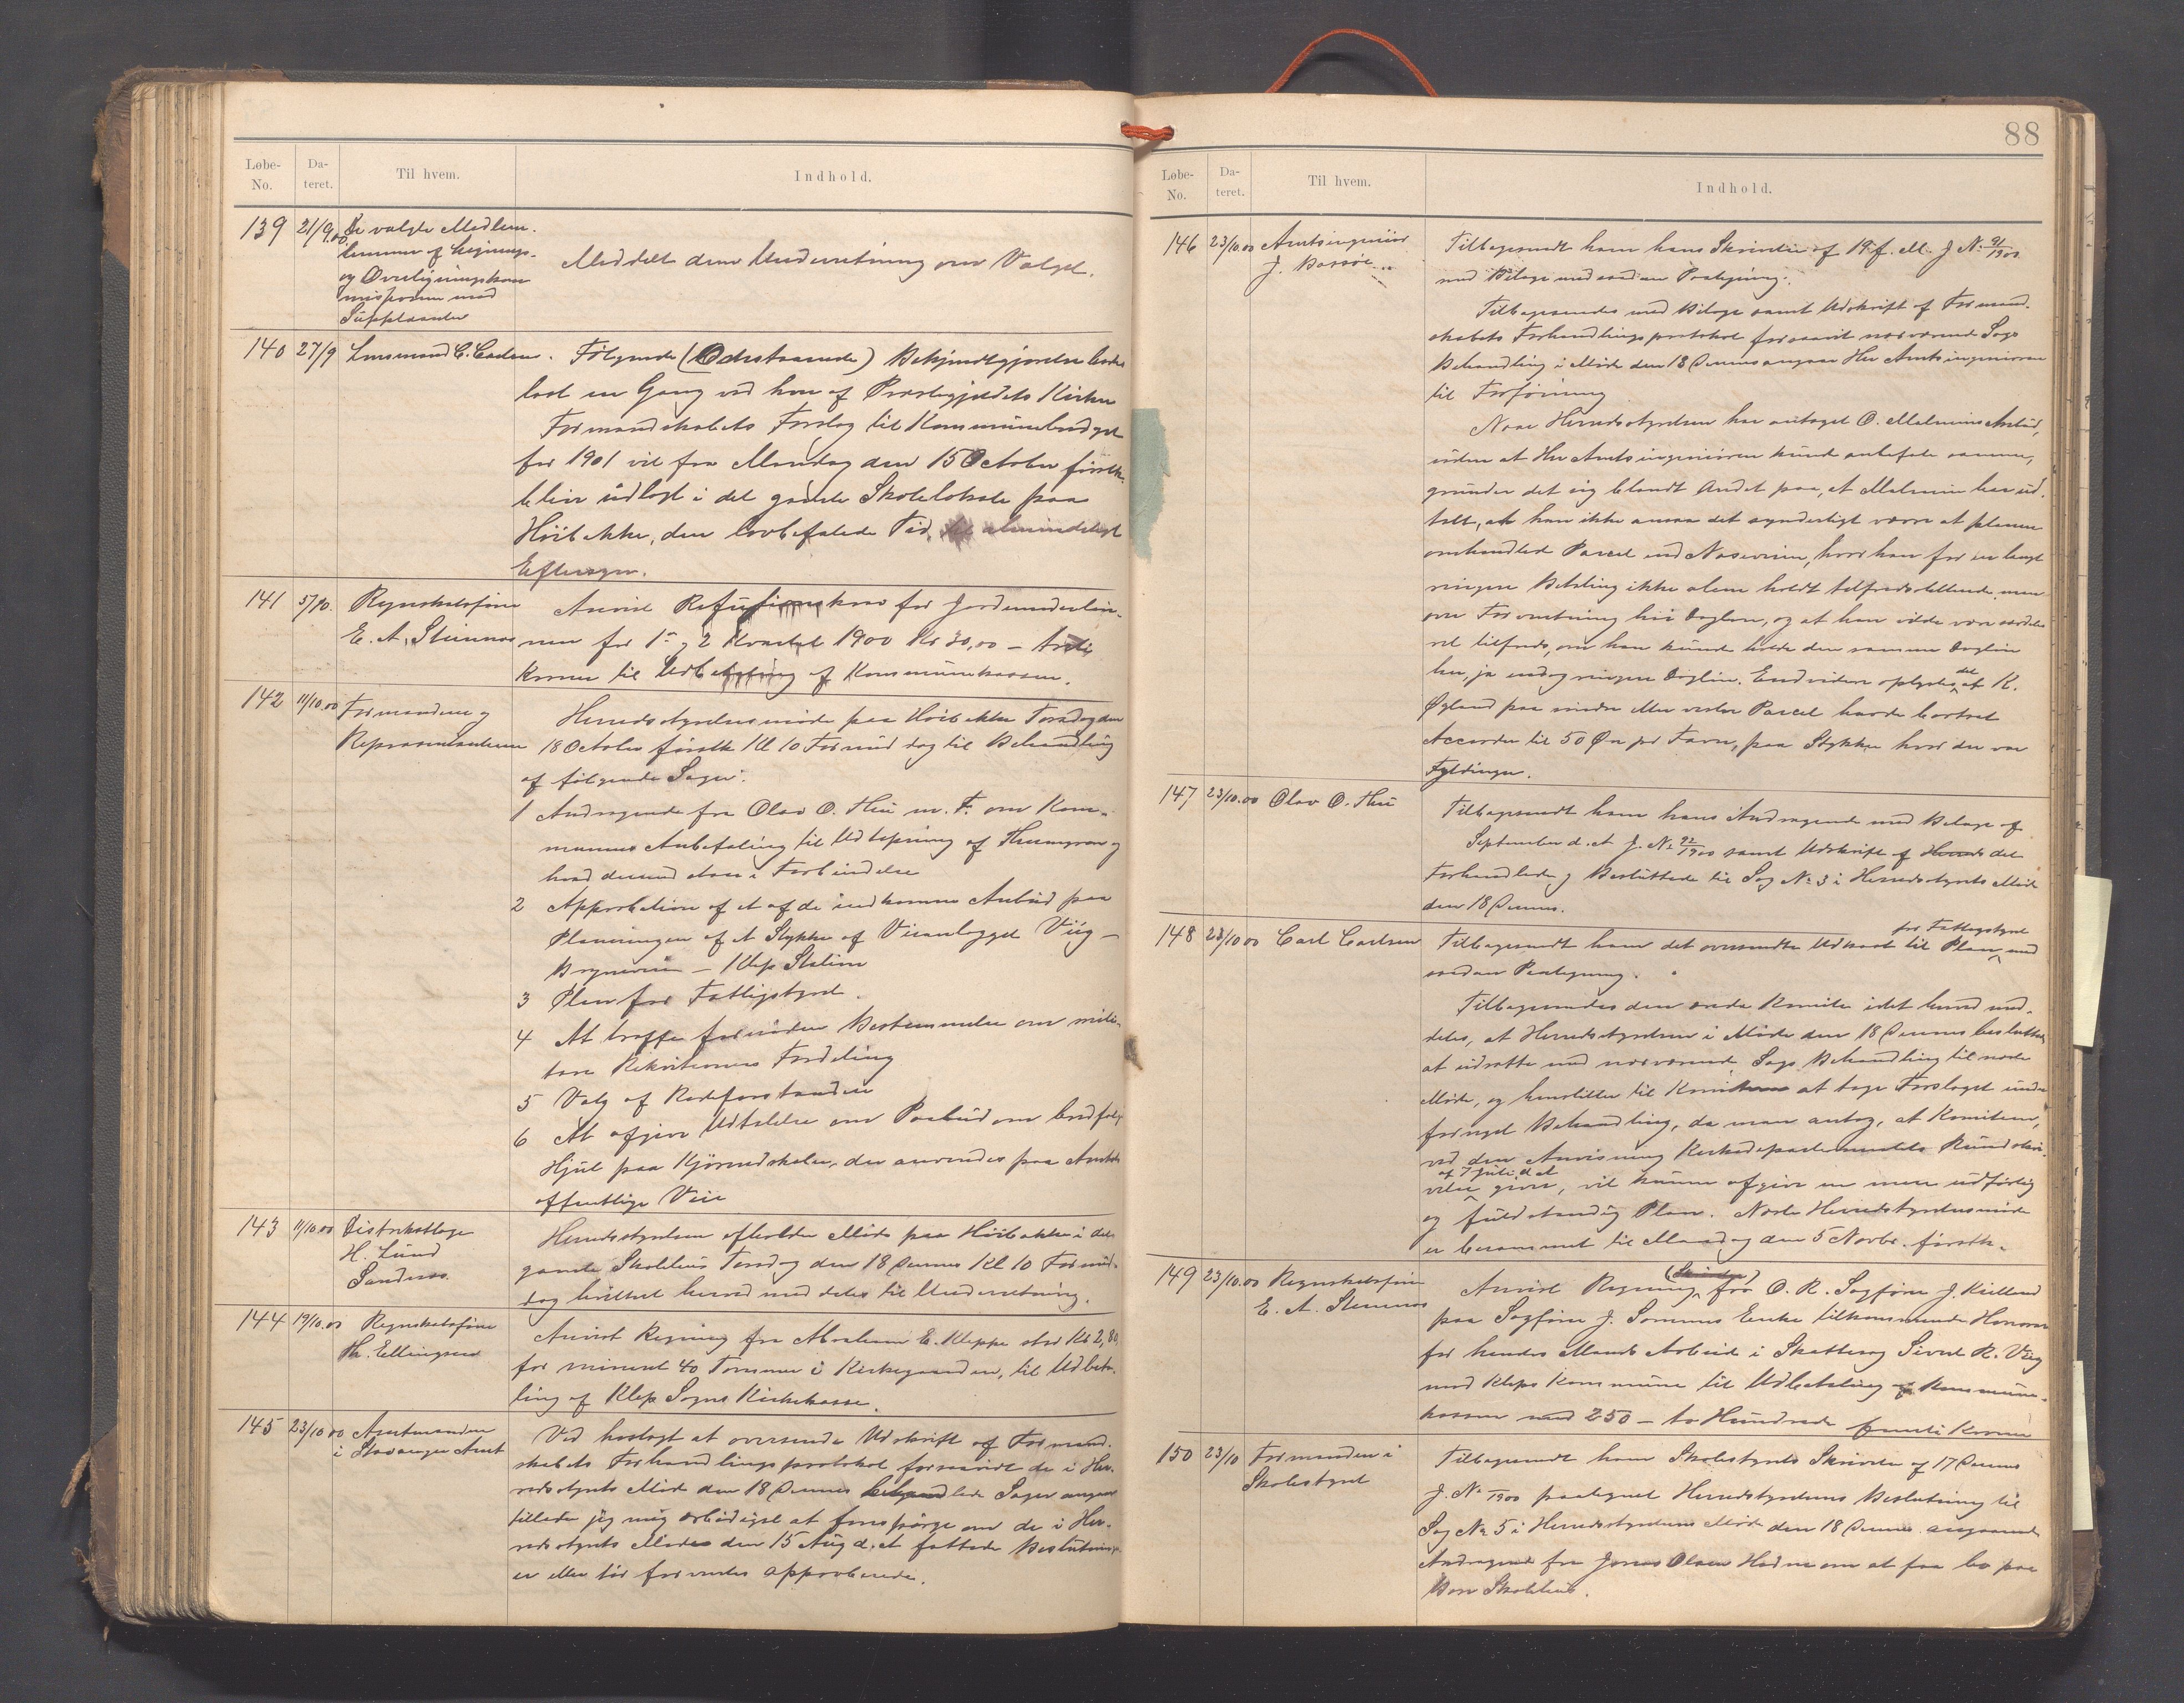 Løbe-
No.
Da-
teret.
Til hvem.
Indhold.
139
21/9.00.
De valgte Medlem-
lemmer af Lignings-
og Overligningskom
missionen med
Supplanter
Meddelt dem Underretning om Valget.
140
27/9
Lensmand C. Carlsen.
Følgende (Oche­staaende) Bekjendtgjørelse bedes
læst en Gang ved hver af Præstegjeldets Kirker
Formandskabets Forslag til Kommunebudget
for 1901 vil fra Mandag den 15 October førstk.
blive udlagt i det gamle Skolelokale paa
Høibakke, den lovbefalede Tid, til almindeligt
Eftersyn.
141
5/10.
Regnskabsfører
E. A. Steinnes
Anvist Refusionskrav for Jordemoderløn-
nen for 1ste og 2 Kvartal 1900 Kr 30,00 – tretti
kroner til Udbetaling af Kommunekassen.
142
11/10.00
Formændene og
Repræsentanterne
Herredsstyrelsesmøde paa Høibakke Torsdag den
18 October førstk Kl 10 Formiddag til Behandling
af følgende Sager:
1 Andragende fra Olav O. Thu m. F. om Kom-
munens Anbefaling til Udtapning af
hvad dermed staar i Forbindelse
2 Approbation af et af de indkomne Anbud paa
Planeringen af et Stykke af Veianlægget Viig –
Bryneveien – Klep Station
3 Plan for Fattigstyret.
4 At træffe fornøden Bestemmelse om mili-
tære Rekvisitioners Fordeling
5 Valg af Rodeforstandere
6 At afgive Udtalelse om Paabud om bredfælg
Hjul paa Kjøreredskaber, der anvendes paa Amtets
offentlige Veie
143
11/10.00
Distriktslæge
H. Lund
Sandnes.
Herredsstyrelsen afholder Møde paa Høibakke i det
gamle Skolehus Torsdag den 18 Dennes Kl 10 Formid-
dag hvilket herved meddeles til Underretning.
144
19/10.00
Regnskabsfører
Th. Ellingsen
Anvist Regning fra Abraham E. Kleppe stor Kr 2,80.
for mineret 40 Tommer i Kirkegaarden, til Udbeta-
ling af Klep Sogns Kirkekasse.
145
23/10 00
Amtmanden
i Stavanger Amt
Ved hoslagt at oversende Udskrift af Formand-
skabets Forhandlingsprotokol forsaavidt de i Her-
redsstyrets Møde den 18 Dennes behandlede Sager angaar
tillader jeg mig ærbødigst at forespørge om de i Her-
redsstyrets Møde den 15 Aug d. A. fattede Beslutning-
er eller blir approberede.
88
Løbe-
No.
Da-
teret.
Til hvem.
Indhold.
146
23/10.00
Amtsingeniør
J. Bassøe
Tilbagesendt ham hans Skrivelse af 19 f. M. J No 91/1900
med Bilage med saadan Paategning:
Tilbagesendes med Bilage samt Udskrift af Formand-
skabets Forhandlingsprotokol forsaavidt nærværende Sags
Behandling i Møde den 18 Dennes angaar Her Amtsingeniøren
til Forføining
Naar Herredsstyrelsen har antaget O. Malmins Anbud,
uden at Her Amtsingeniøren kunde anbefale samme,
grunder det sig blandt Andet paa, at Malmin har ud-
talt, at han ikke ansaa det synderligt værre at planere
omhandlede Parcel end Næseveien, hvor han for en langt
ringere Betaling ikke alene holdt tilfredsstillende men
over Forventning høi Dagløn, og at han vilde være særdeles
vel tilfreds, om han kunde holde den samme Dagløn
her, ja endog ringere Dagløn. Endvidere oplystes det at K.
Øgland paa nedre eller vestre Parcel havde bortsat
Accorder til 50 Øre pr Favn, paa Stykker hvor der var
Fyldinger.
147
23/10.00
Olav O. Thu
Tilbagesendt ham hans Andragende med Bilage af
September d. A. J. No 92/1900 samt Udskrift af det
Forhandlede og Besluttede til Sag No 3 i Herredsstyrets Møde
den 18 Dennes.
148
23/10 00
Carl Carlsen
Tilbagesendt ham det oversendte Udkast til Plan for Fattigstyret med
saadan Paategning.
Tilbagesendes den ærede Komite idet herved med-
deles, at Herredsstyrelsen i Møde den 18 Dennes besluttede
at udsætte med nærværende Sags Behandling til næste
Møde, og henstiller til Komiteen at tage Forslaget under
fornyet Behandling, da man antog, at Komiteen,
ved den Anvisning Kirkedepartementets Rundskri-
velse af 7 Juli d A giver, vil kunne afgive en mere udførlig
og fuldstændig Plan. Næste Herredsstyrelsesmøde
er berammet til Mandag den 5 Novbr. førstk.
149
23/10.00
Regnskabsfører
E. A. Steinnes
Anvist Regning fra O. R. Sagfører J. Kielland
paa Sagfører J. Sømmes Enke tilkommende Honorar
for hendes Mands Arbeide i Skattesag Sivert R. Viig
mod Kleps Kommune til Udbetaling af Kommune-
kassen med 250 – to Hundrede femti Kroner
150
23/10
Formanden i
Skolestyret
Tilbagesendt ham Skolestyrets Skrivelse af 17 Dennes
J. No /1900 paategnet Herredsstyrelsens Beslutning til
Sag No 5 i Herredsstyrelsens Møde den 18 Dennes angaaende
Andragende fra Jonas Olsen Hodne om at faa bo paa
Bore Skolehus.